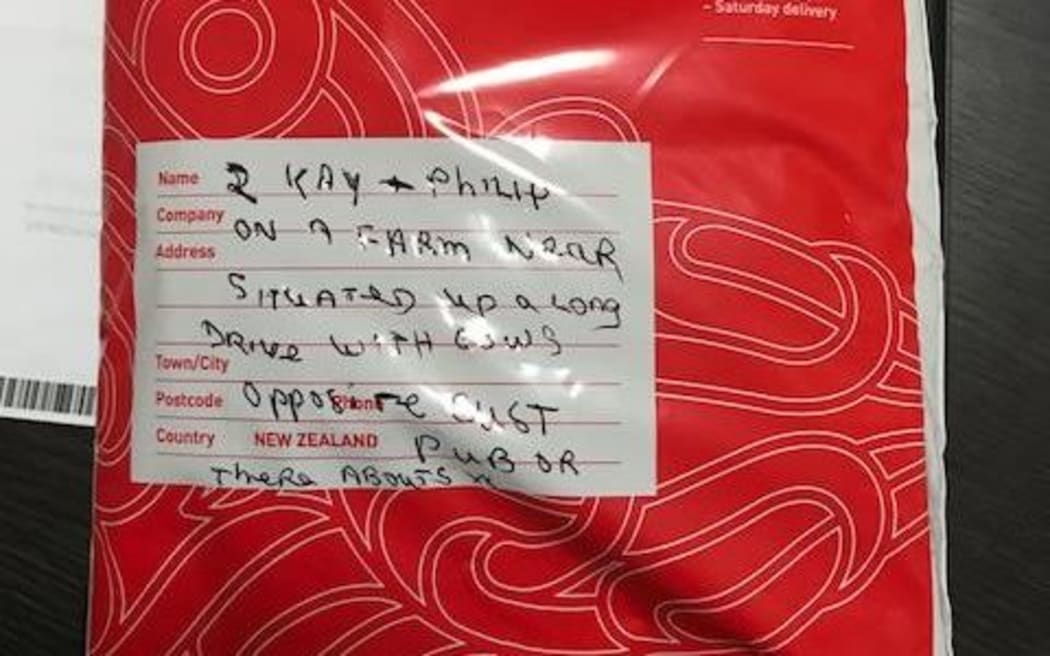 - Saturday delivery
Name 2 KAY + PHILIP
Company ON A FARM NEAR
Address
SITUATED UP A LONG
DRIVE WITH COWS
Town/City
Postcode OPPOSITE Phone CUST
Country NEW ZEALAND PUB OR
THERE ABOUTS